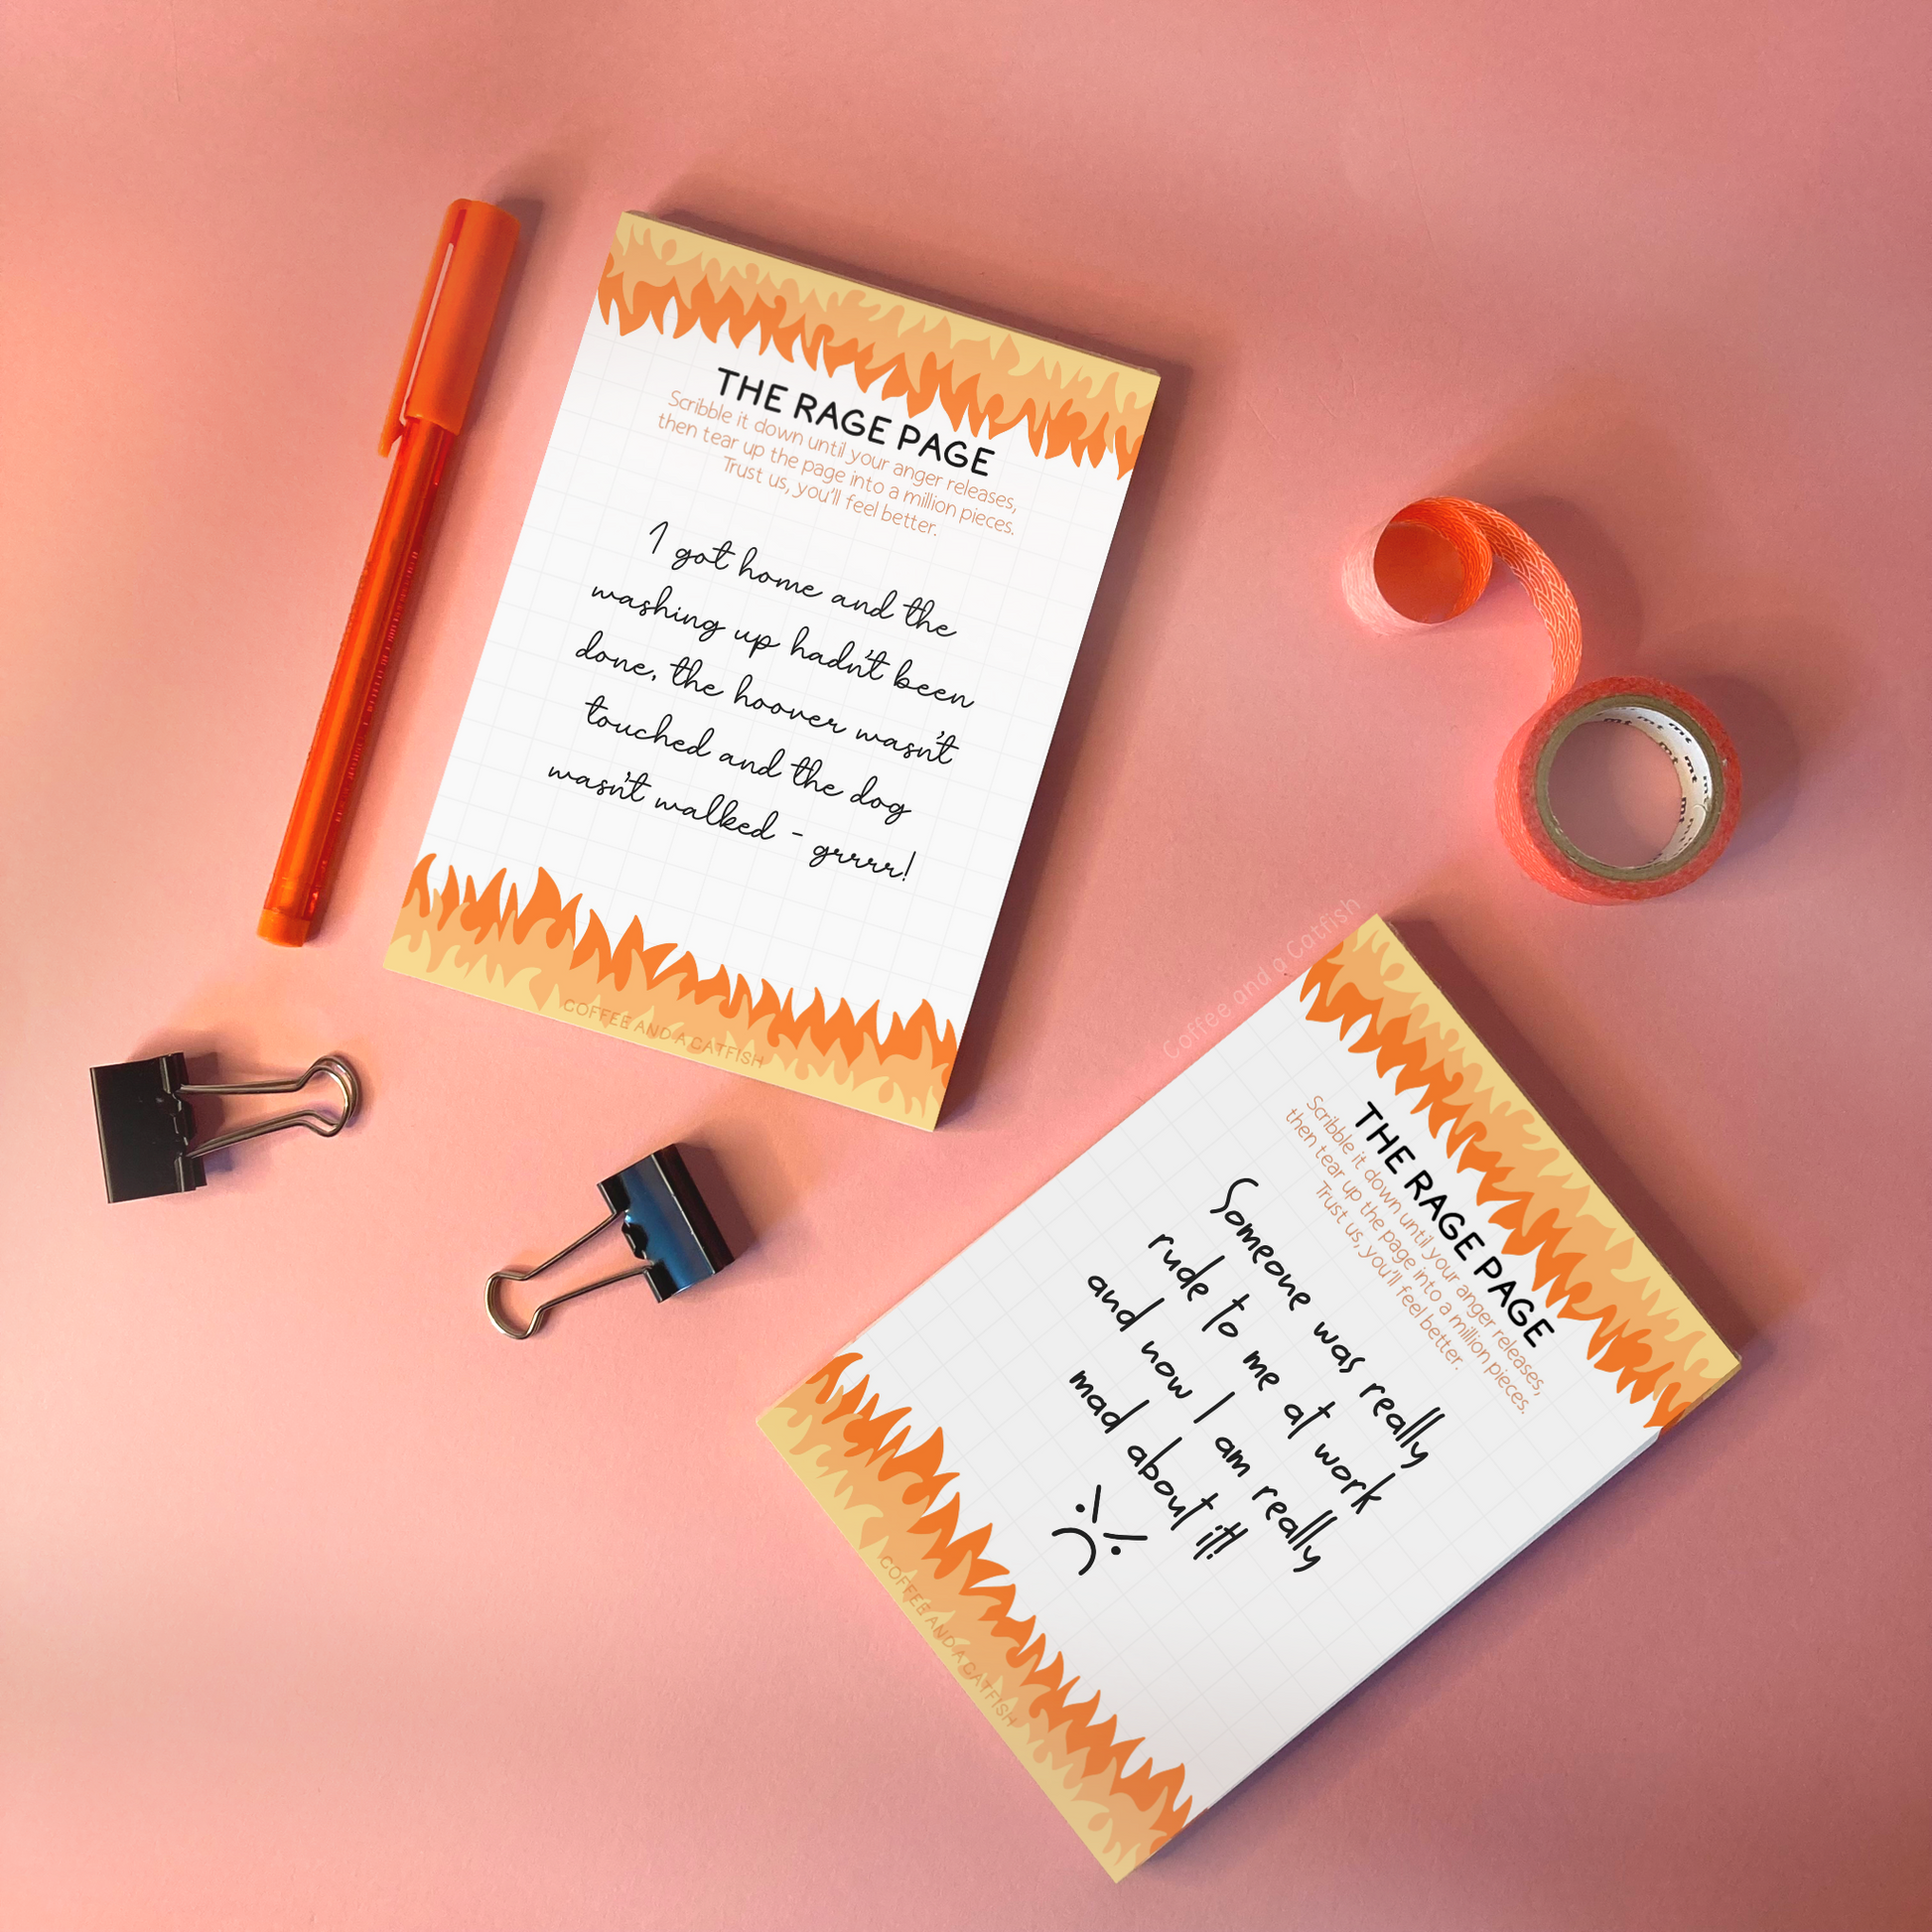 THE RAGE PAGE
Scribble it down until your anger releases,
then tear up the page into a million pieces.
Trust us, you'll feel better.
I got home and the
washing up hadn't been
done, the hoover wasn't
touched and the dog
wasn't walked - grrrr!
COFFEE AND A CATFISH
mt mt mt mt mt
Coffee and a Catfish
THE RAGE PAGE
Scribble it down until your anger releases,
then tear up the page into a million pieces.
Trust us, you'll feel better.
Someone was really
rude to me at work
and now I am really
mad about it!!
COFFEE AND A CATFISH